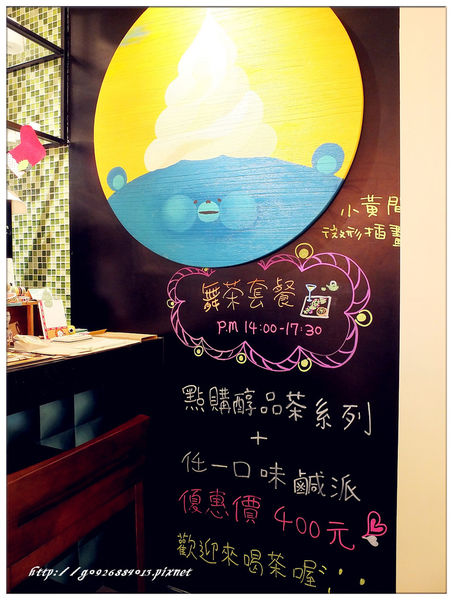 小黃間
微形插畫
舞茶套餐
P.M 14:00-17:30
點購醇品茶系列
+
任一口味鹹派
優惠價 400元
歡迎來喝茶喔
http://g0926884013.pixnet